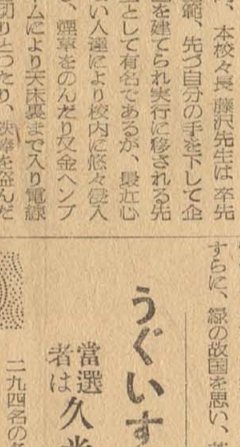 、本校々長藤沢先生は卒先
範、先づ自分の手を下して企
を建てられ実行に移される先
として有名であるが、最近心
い人達により校内に悠々侵入
、煙草をのんだり又金ヘンブ
ムにより天床裏まで入り電線
切りとったり、鉄棒を盗んだ
すらに、緑の故国を思い、
うぐいす
當選者は久
二九四名の